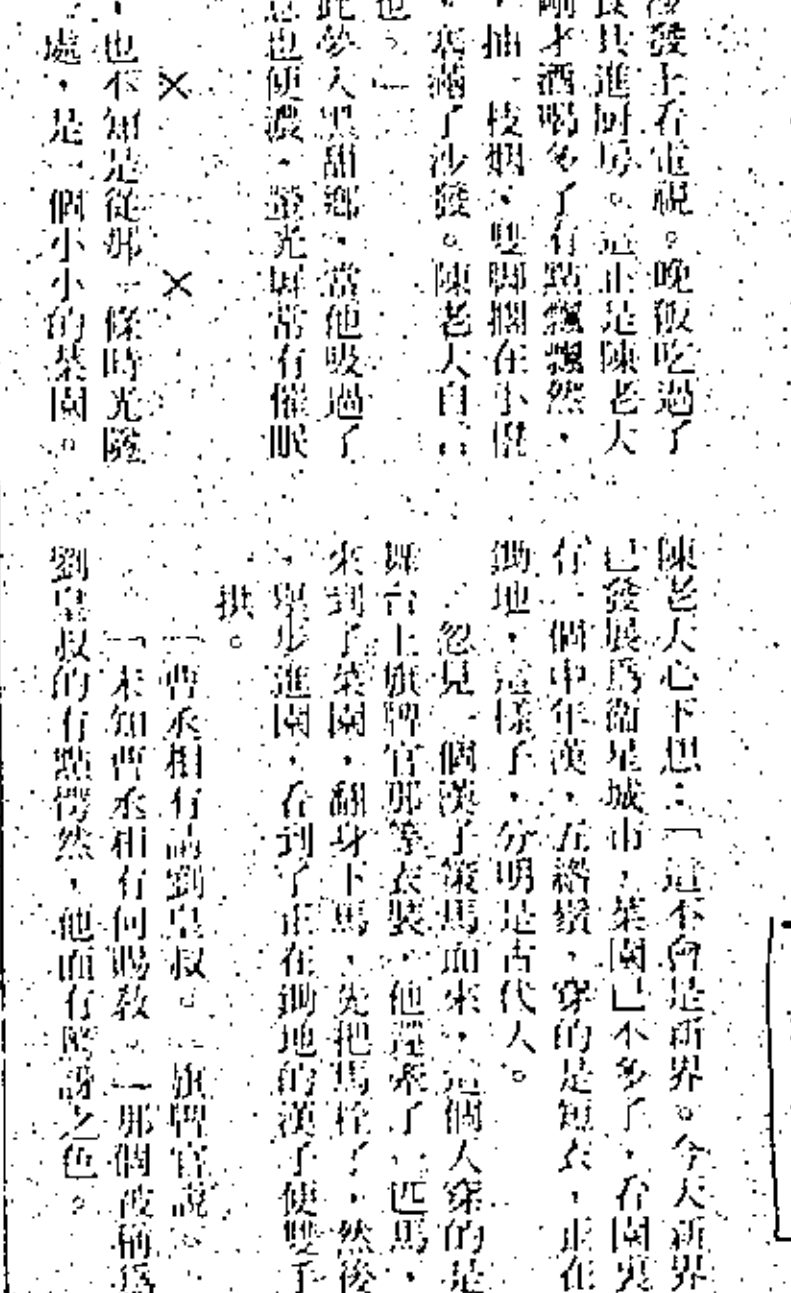 沙發上看電視。晚飯吃過了
進厨房。這正是陳老大
剛才酒喝多了有點飄飄然，
，抽一枝烟，雙脚擱在小櫈
滿了沙發。陳老大自言
也。」
此夢入黑甜鄉，當他吸過了
意也便濃，螢光屏常有催眠
×　×
，也不知是從那一條時光隧
處，是一個小小的菜園。
陳老大心下想：「這不會是新界。今天新界
已發展爲衞星城市，菜園已不多了，看園裏
有一個中年漢，五綹鬚，穿的是短衣，正在
鋤地，這樣子，分明是古代人。
忽見一個漢子策馬而來，這個人穿的是
舞台上旗牌官那等衣裝，他還牽了一匹馬，
來到了菜園，翻身下馬，先把馬栓了，然後
，舉步進園，看到了正在鋤地的漢子便雙手
一拱。
「曹丞相有請劉皇叔。」旗牌官說。
「未知曹丞相有何賜教。」那個被稱爲
劉皇叔的有點愕然，他面有驚訝之色。